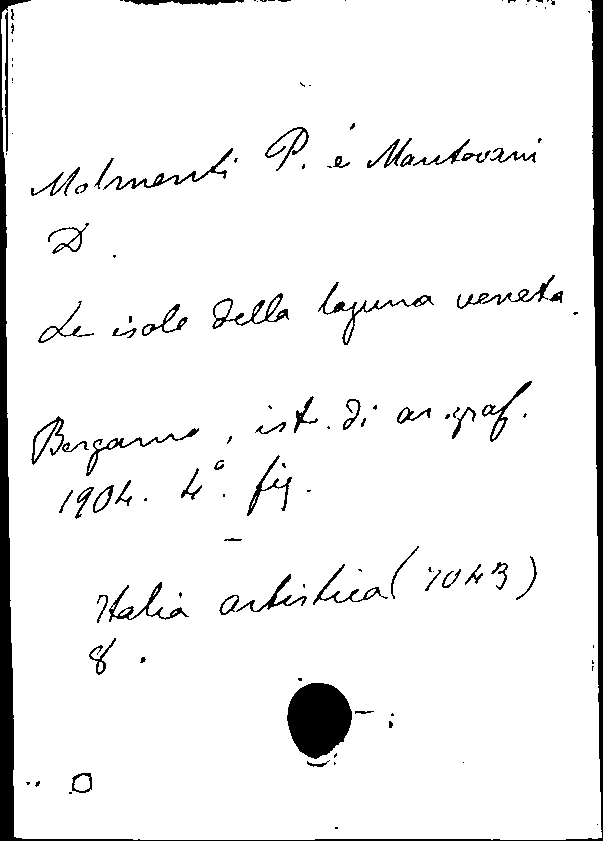 Molmenti P. e Mantovani
D.
Le isole della laguna veneta.
Bergamo, ist. di ar. graf.
1904. 4°. fig.
Italia artistica (7043)
8.